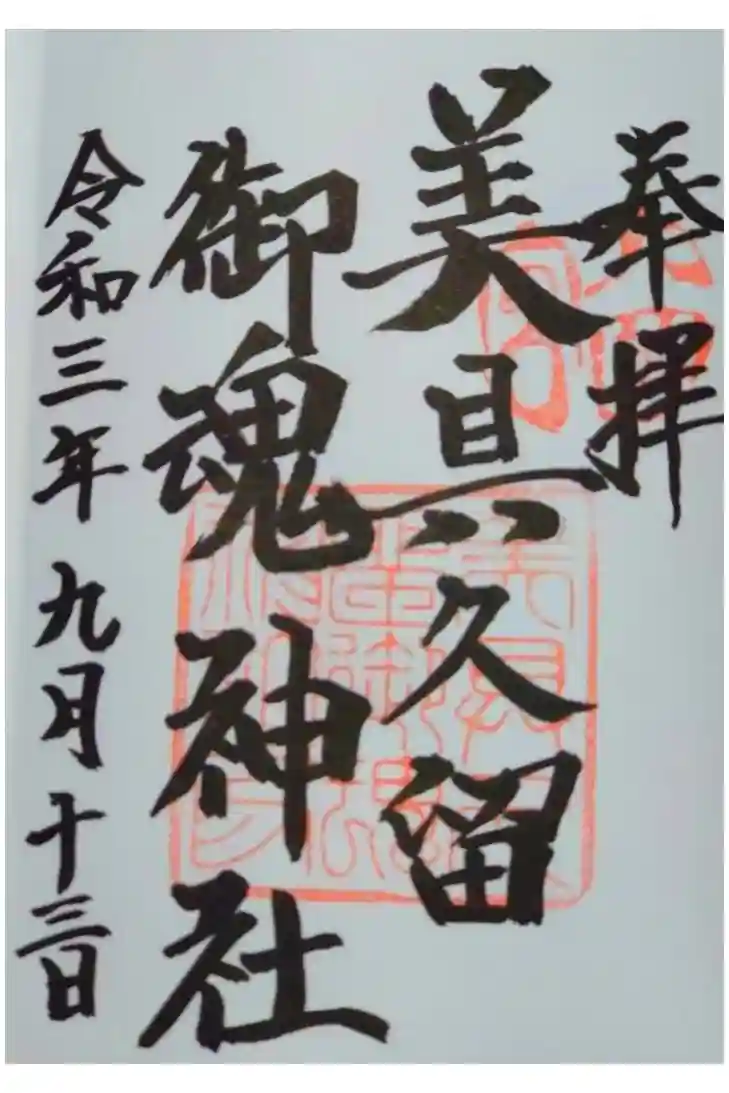 奉拝
美具久留
御魂神社
令和三年九月十三日